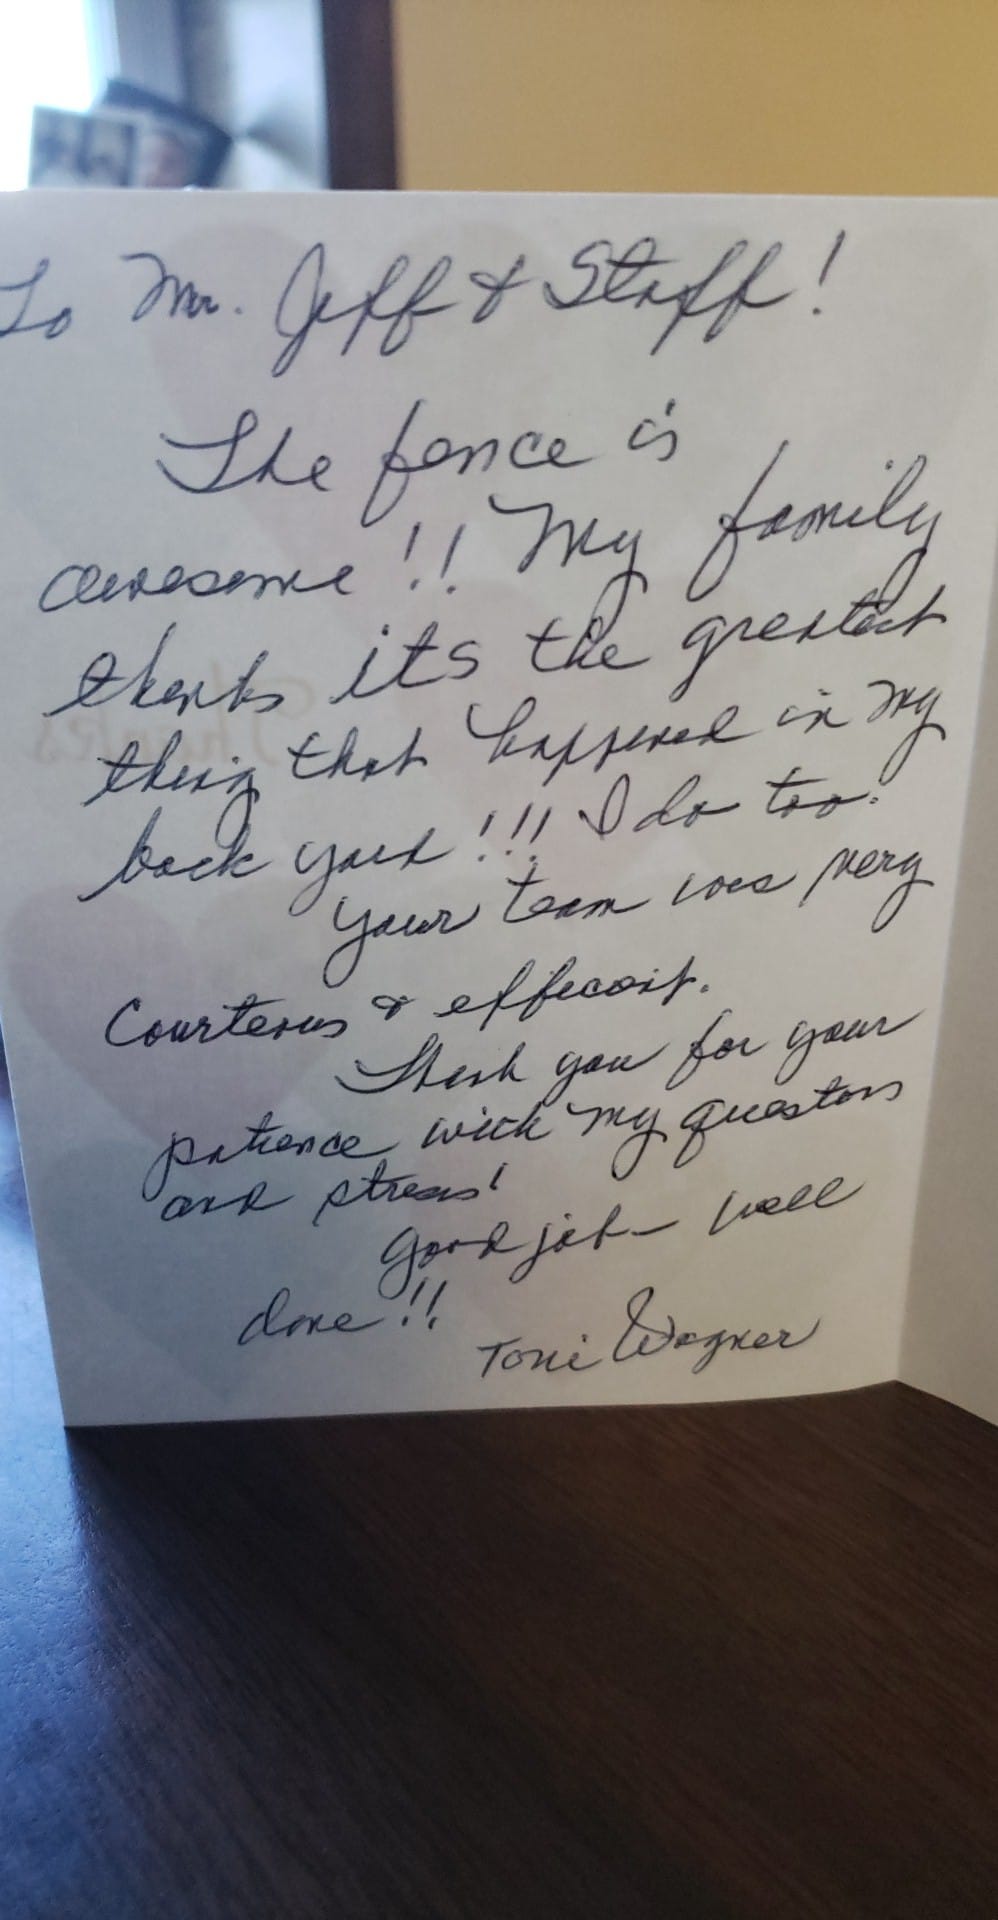 To Mr. Jeff & Staff!
The fence is
awesome!! My family
thinks its the greatest
thing that happened in my
back yard!!! I do too.
Your team was very
Courteous & efficient.
Thank you for your
patience with my questions
and stress!
Good job - well
done!!
Toni Wagner
Thanks